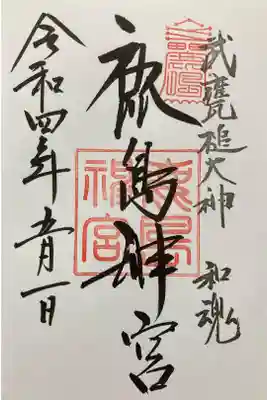 武甕槌大神 和魂
鹿島神宮
鹿島神宮
令和四年五月一日